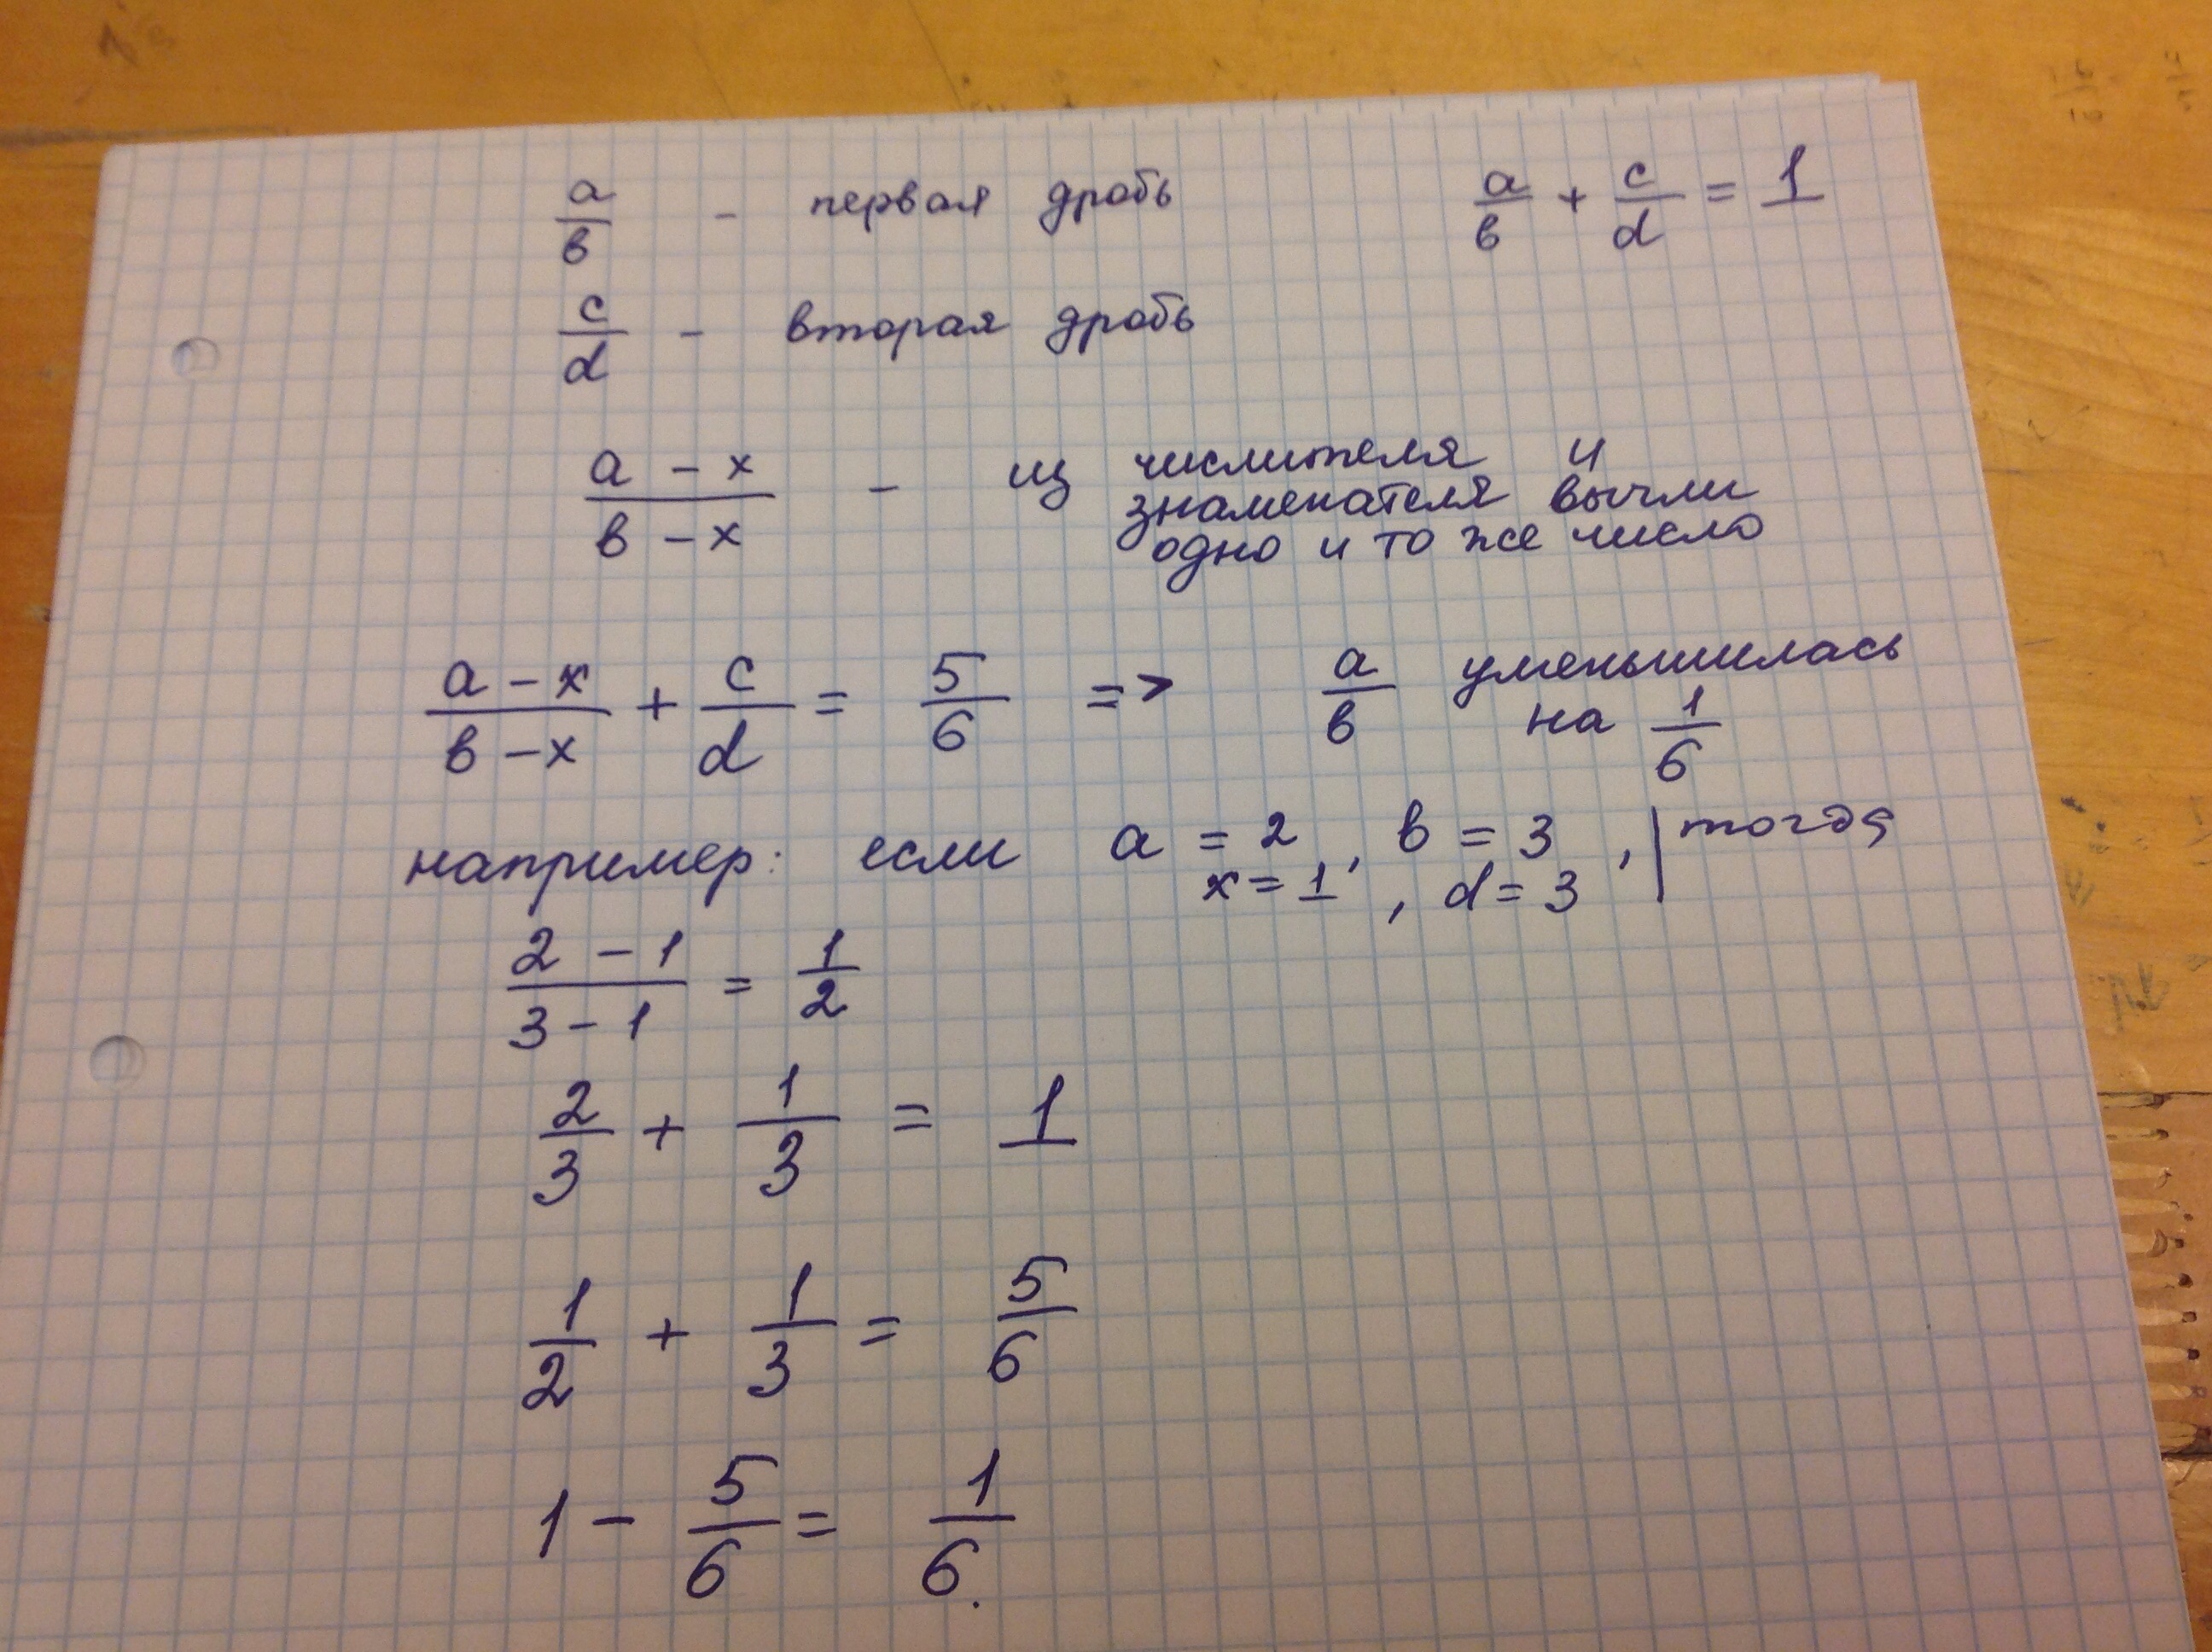 a/b - первая дробь a/b + c/d = 1
c/d - вторая дробь
a - x / b - x - из числителя и
знаменателя вычли
одно и то же число
a - x / b - x + c/d = 5/6 => a/b уменьшилась
на 1/6
например: если a = 2, b = 3, | тогда
x = 1, d = 3
2 - 1 / 3 - 1 = 1/2
2/3 + 1/3 = 1
1/2 + 1/3 = 5/6
1 - 5/6 = 1/6.